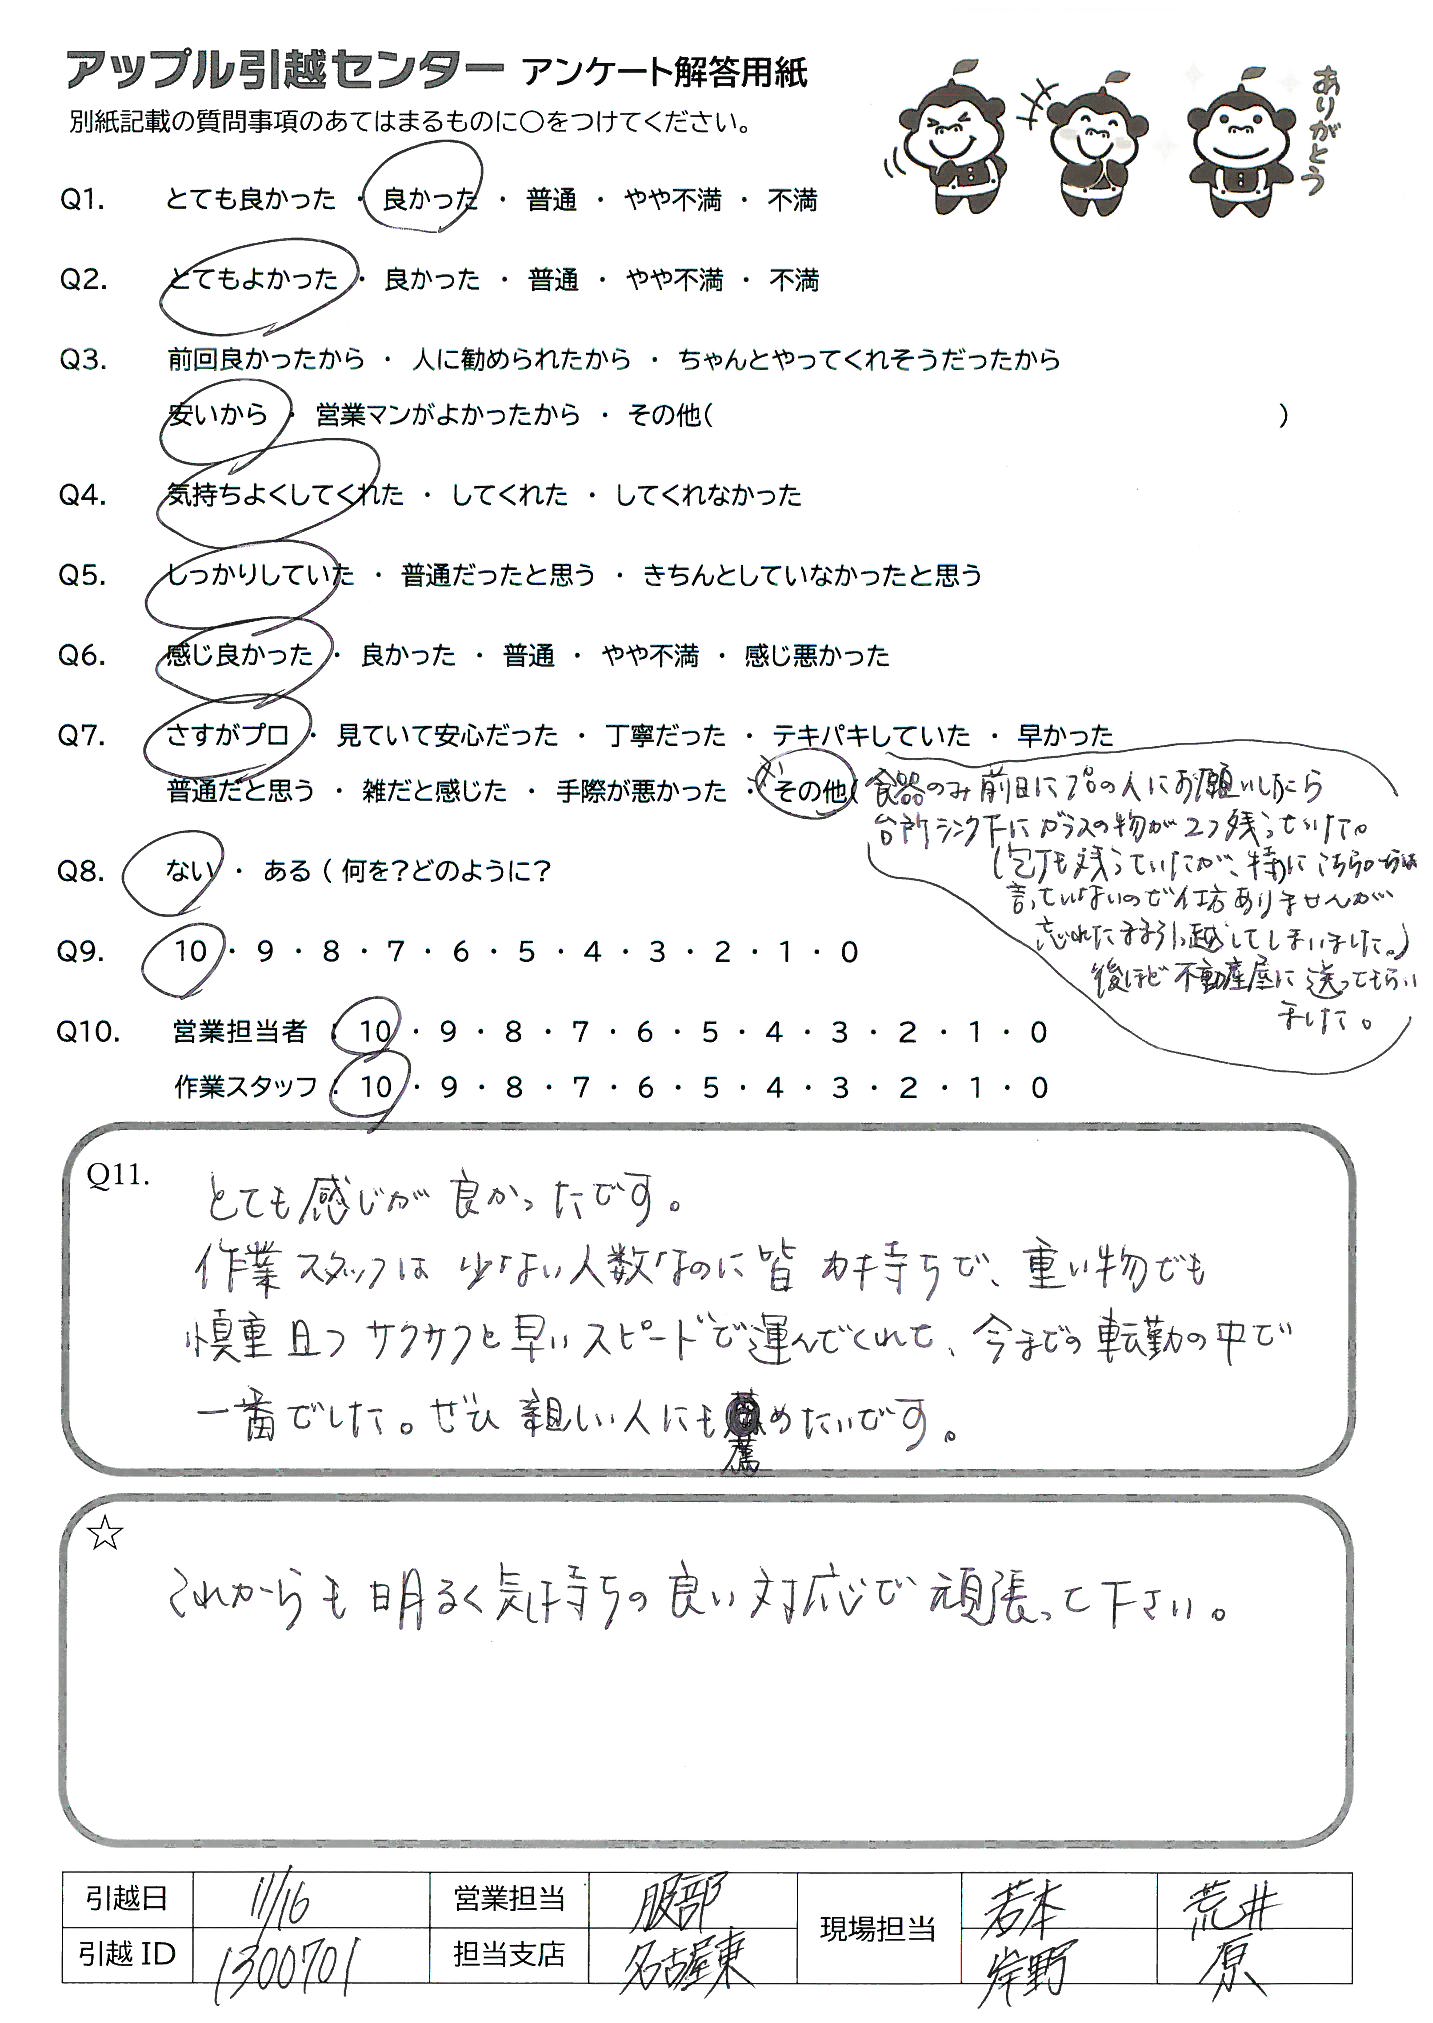 アップル引越センター アンケート解答用紙
別紙記載の質問事項のあてはまるものに○をつけてください。
ありがとう
Q1. とても良かった ・ 良かった ・ 普通 ・ やや不満 ・ 不満
Q2. とてもよかった ・ 良かった ・ 普通 ・ やや不満 ・ 不満
Q3. 前回良かったから ・ 人に勧められたから ・ ちゃんとやってくれそうだったから
安いから ・ 営業マンがよかったから ・ その他( )
Q4. 気持ちよくしてくれた ・ してくれた ・ してくれなかった
Q5. しっかりしていた ・ 普通だったと思う ・ きちんとしていなかったと思う
Q6. 感じ良かった ・ 良かった ・ 普通 ・ やや不満 ・ 感じ悪かった
Q7. さすがプロ ・ 見ていて安心だった ・ 丁寧だった ・ テキパキしていた ・ 早かった
普通だと思う ・ 雑だと感じた ・ 手際が悪かった ・ その他( 食器のみ前日にプロの人にお願いしたら
台所シンク下にガラスの物が2つ残っていた。
(包丁も残っていたが、特にこちらからは
言っていないので仕方ありませんが
忘れたまま引っ越してしまいました。)
後ほど不動産屋に送ってもらい
ました。
Q8. ない ・ ある ( 何を?どのように?
Q9. 10 ・ 9 ・ 8 ・ 7 ・ 6 ・ 5 ・ 4 ・ 3 ・ 2 ・ 1 ・ 0
Q10. 営業担当者 : 10 ・ 9 ・ 8 ・ 7 ・ 6 ・ 5 ・ 4 ・ 3 ・ 2 ・ 1 ・ 0
作業スタッフ : 10 ・ 9 ・ 8 ・ 7 ・ 6 ・ 5 ・ 4 ・ 3 ・ 2 ・ 1 ・ 0
Q11. とても感じが良かったです。
作業スタッフは少ない人数なのに皆力持ちで、重い物でも
慎重且つサクサクと早いスピードで運んでくれて、今までの転勤の中で
一番でした。ぜひ親しい人にも薦めたいです。
☆
これからも明るく気持ちの良い対応で頑張って下さい。
引越日 11/16 営業担当 服部 現場担当 若本 荒井
引越ID 1300701 担当支店 名古屋東 岸野 原